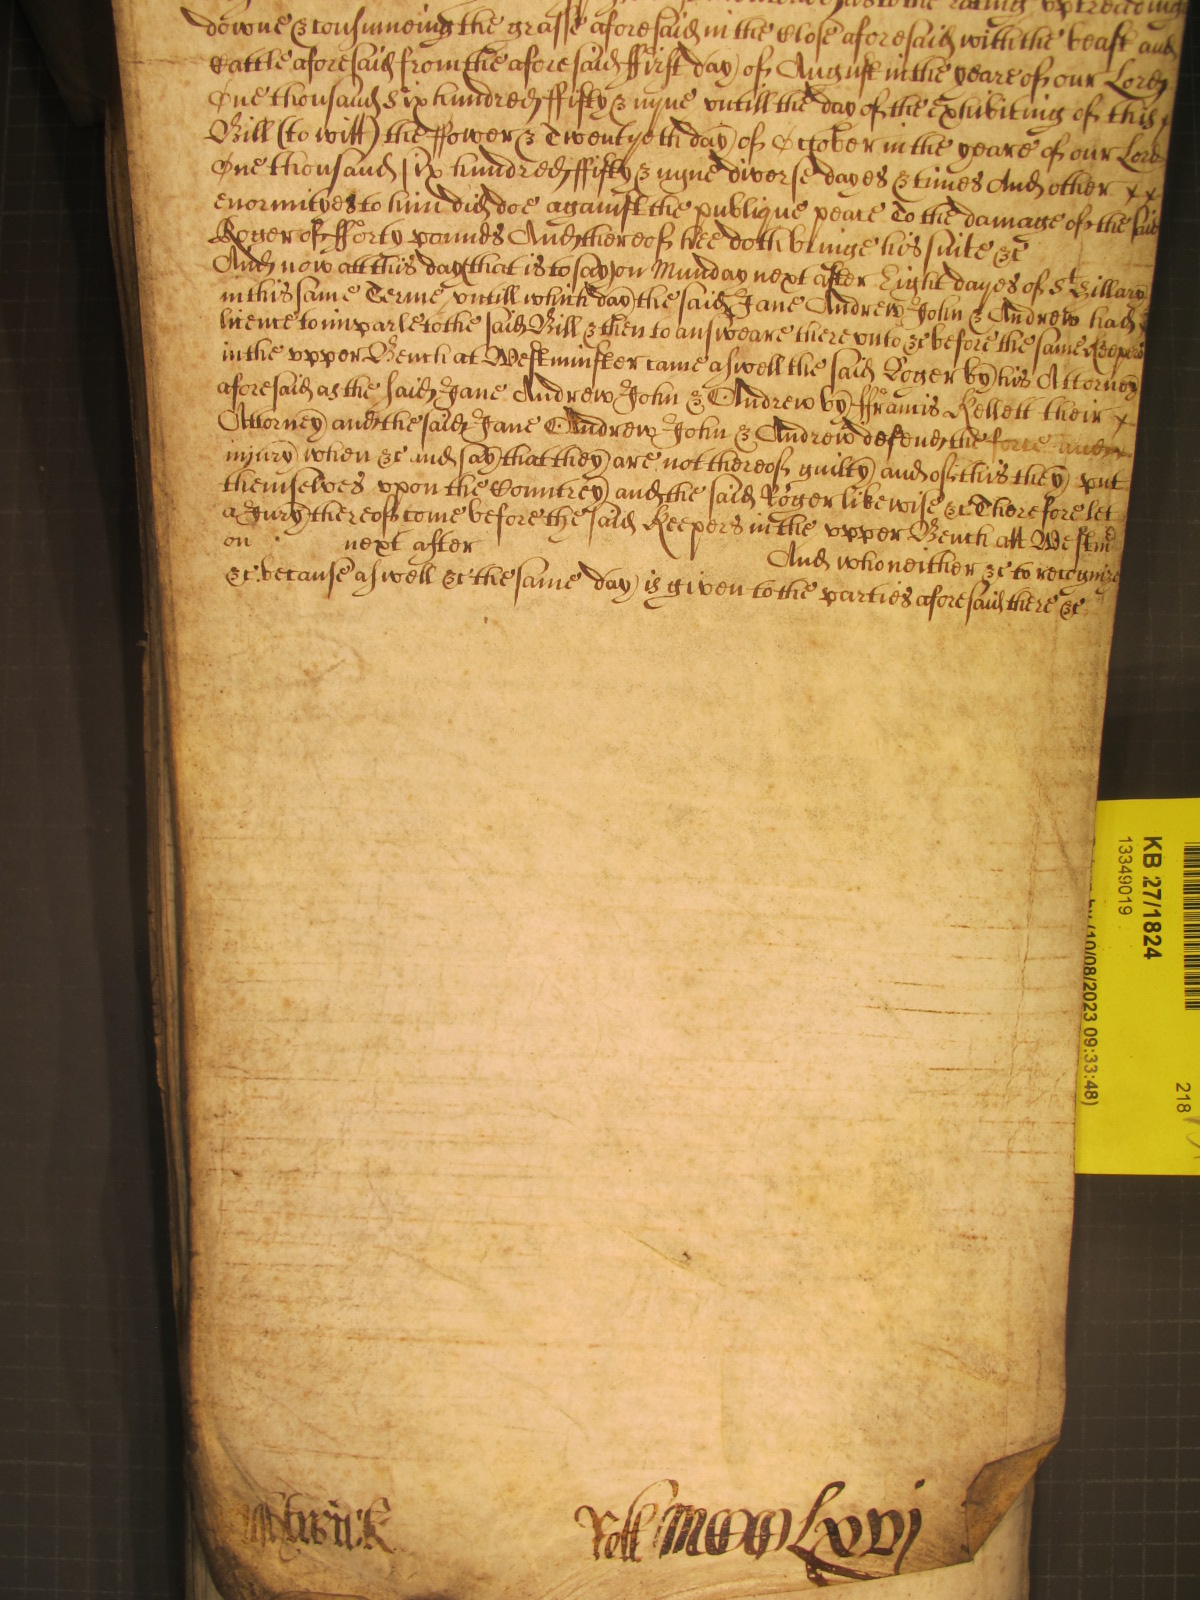 to the eating up treading
downe & consumeing the grasse aforesaid in the Close aforesaid with the beast and
Cattle aforesaid from the aforesaid ffirst day of August in the yeare of our Lord
One thousand Six hundred ffifty & nyne untill the day of the exhibiting of this
Bill (to witt) the ffower & Twentyeth day of October in the yeare of our Lord
One thousand six hundred ffifty & nyne diverse dayes & times And other x x
enormityes to him did doe against the publique peace To the damage of the said
Roger of fforty pounds And thereof hee doth bringe his suite &c
And now att this day (that is to say) on Munday next after Eight dayes of St Hillary
in this same Terme untill which day the said Jane Andrew John & Andrew had
licence to imparle to the said Bill & then to answeare thereunto &c before the same Keepers
in the upper Bench at Westminster came aswell the said Roger by his Attorney
aforesaid as the said Jane Andrew John & Andrew by ffrancis Kellett their x
Attorney and the said Jane Andrew John & Andrew defend the force and x
injury when &c and say that they are not thereof guilty and of this they put
themselves upon the Countrey and the said Roger likewise &c Therefore let
a Jury thereof come before the said Keepers in the upper Bench att Westm
on next after And who neither &c to recognize
&c because aswell &c the same day is given to the parties aforesaid there &c
Roll MCCCLxvi
KB 27/1824
13349019
(10/08/2023 09:33:48)
218